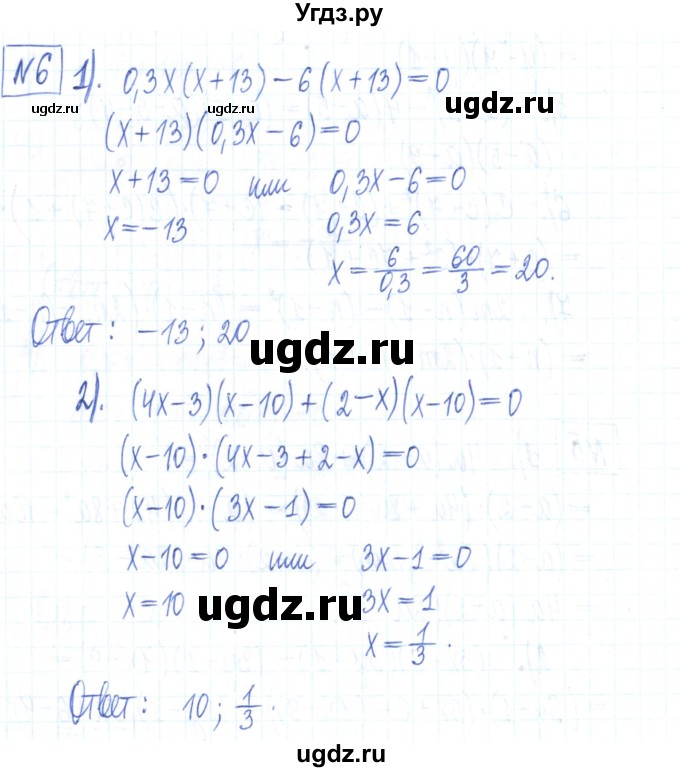 Угдз.ру
№6 1). 0,3x(x+13)-6(x+13)=0
ugdz.ru ugdz.ru ugdz.ru
(x+13)(0,3x-6)=0
x+13=0 или 0,3x-6=0
x=-13 0,3x=6
x=6/0,3=60/3=20.
Ответ: -13; 20
ugdz.ru
2). (4x-3)(x-10)+(2-x)(x-10)=0
(x-10)·(4x-3+2-x)=0
(x-10)·(3x-1)=0
x-10=0 или 3x-1=0
x=10 3x=1
ugdz.ru
x=1/3.
Ответ: 10; 1/3.
ugdz.ru